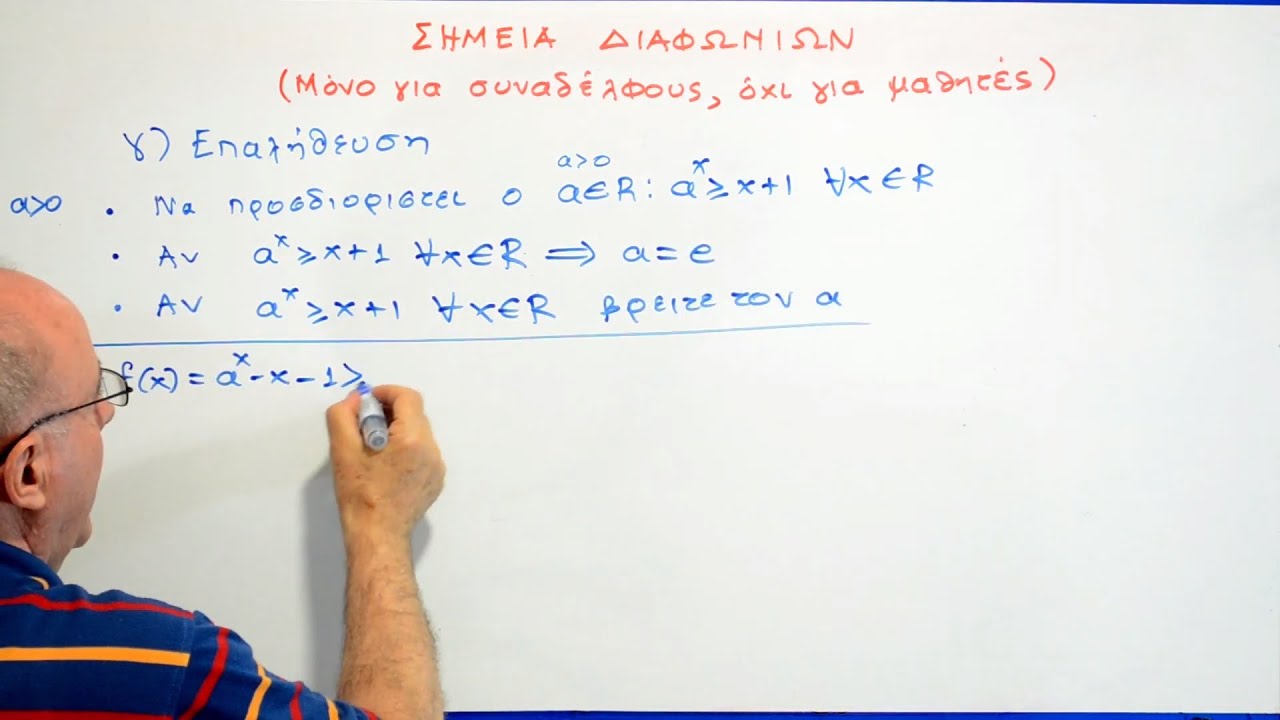 ΣΗΜΕΙΑ ΔΙΑΦΩΝΙΩΝ
(Μόνο για συναδέλφους, όχι για μαθητές)
γ) Επαλήθευση
a>0
a>0 · Να προσδιοριστεί ο a∈R: a^x ≥ x+1 ∀x∈R
· Αν a^x ≥ x+1 ∀x∈R ⟹ a=e
· Αν a^x ≥ x+1 ∀x∈R βρειτε τον α
f(x) = a^x - x - 1 ≥